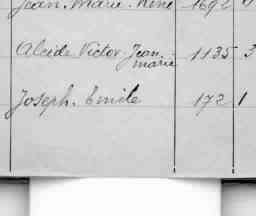 Jean. Marie. René 1692
Alcide Victor Jean 1135 3
marie
Joseph. Emile 172 1